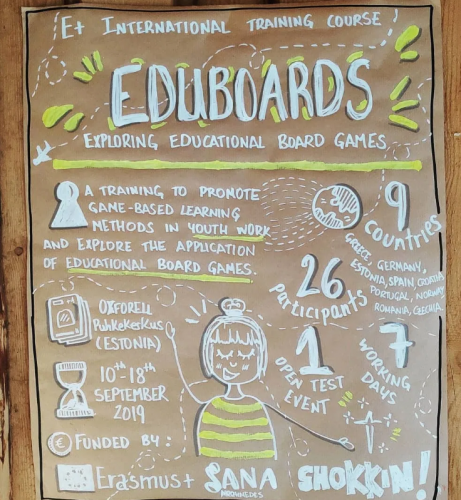 E+ INTERNATIONAL TRAINING COURSE
EDUBOARDS
EXPLORING EDUCATIONAL BOARD GAMES
A TRAINING TO PROMOTE
GAME-BASED LEARNING
METHODS IN YOUTH WORK
AND EXPLORE THE APPLICATION
OF EDUCATIONAL BOARD GAMES.
9
countries
GREECE, GERMANY,
ESTONIA, SPAIN, CROATIA
PORTUGAL, NORWAY
ROMANIA, CZECHIA
26
participants
OXFORELL
Puhkekeskus
(ESTONIA)
10th-18th
SEPTEMBER
2019
1
OPEN TEST
EVENT
7
WORKING
DAYS
FUNDED BY:
Erasmus+
SANA
SHOKKIN!